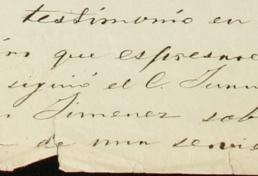 testimonio en
que espresa
siguió el C. Juan
Jimenez sob
de una servi